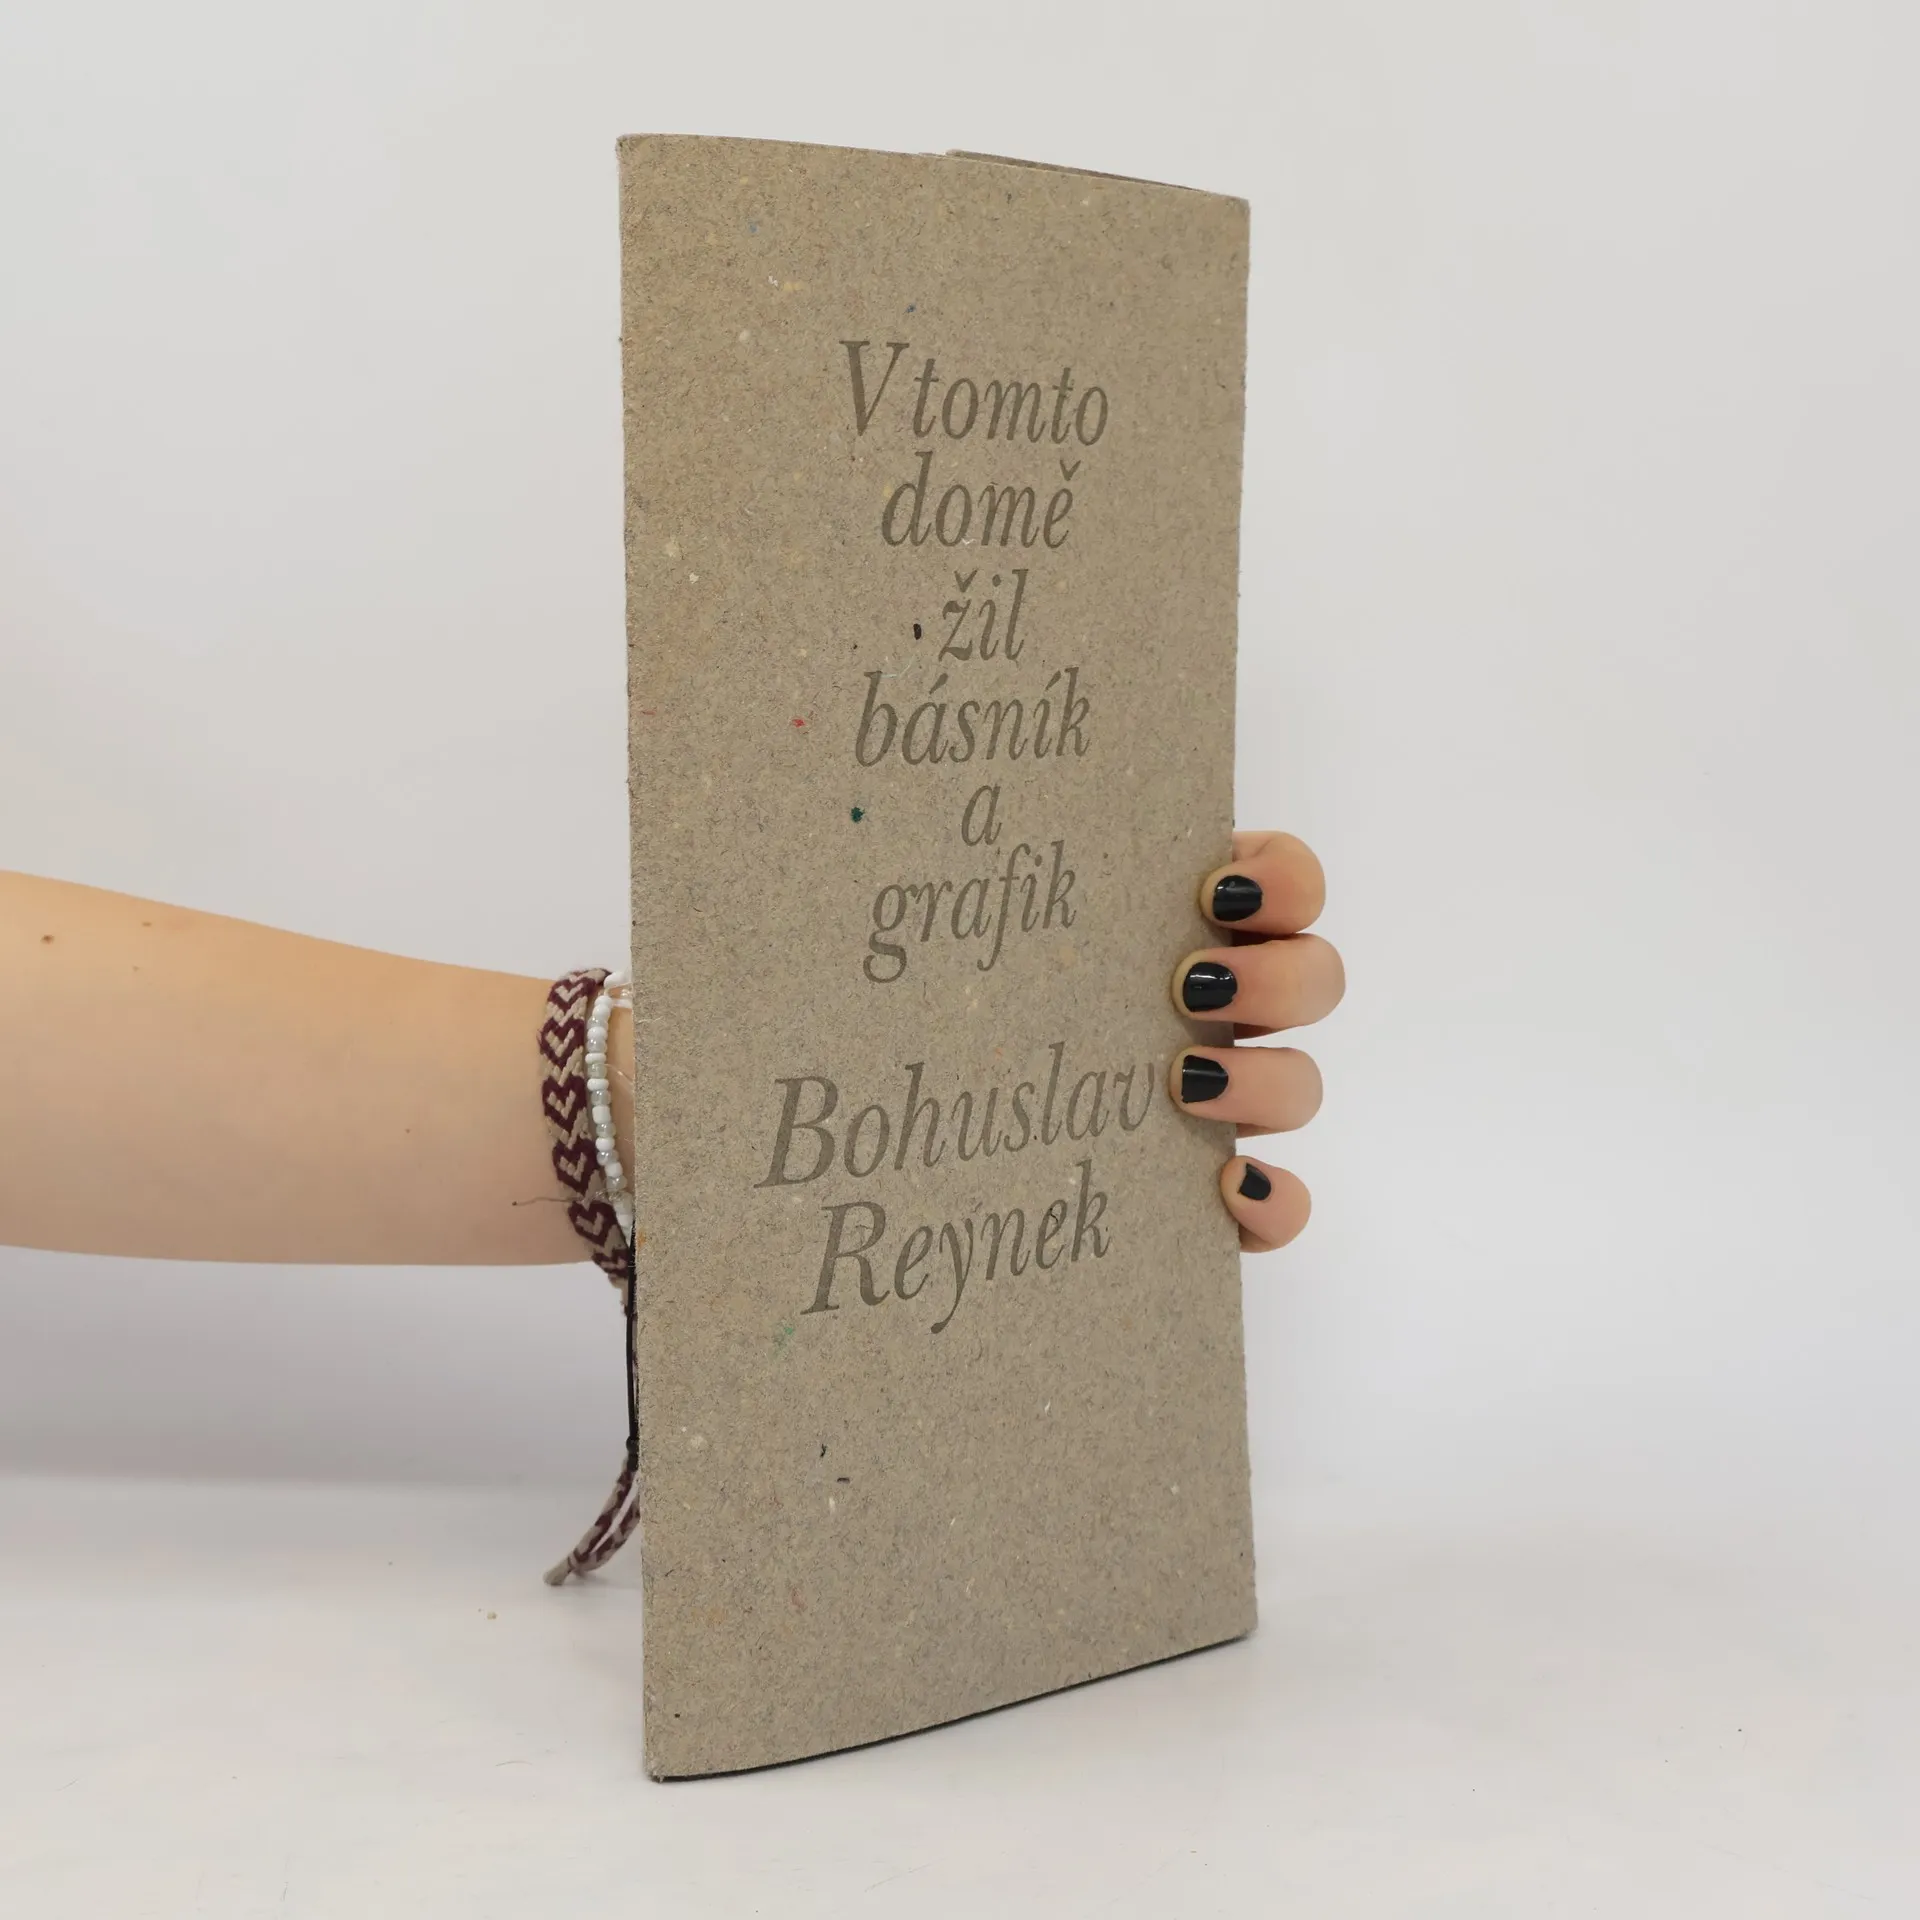 V tomto
domě
žil
básník
a
grafik
Bohuslav
Reynek